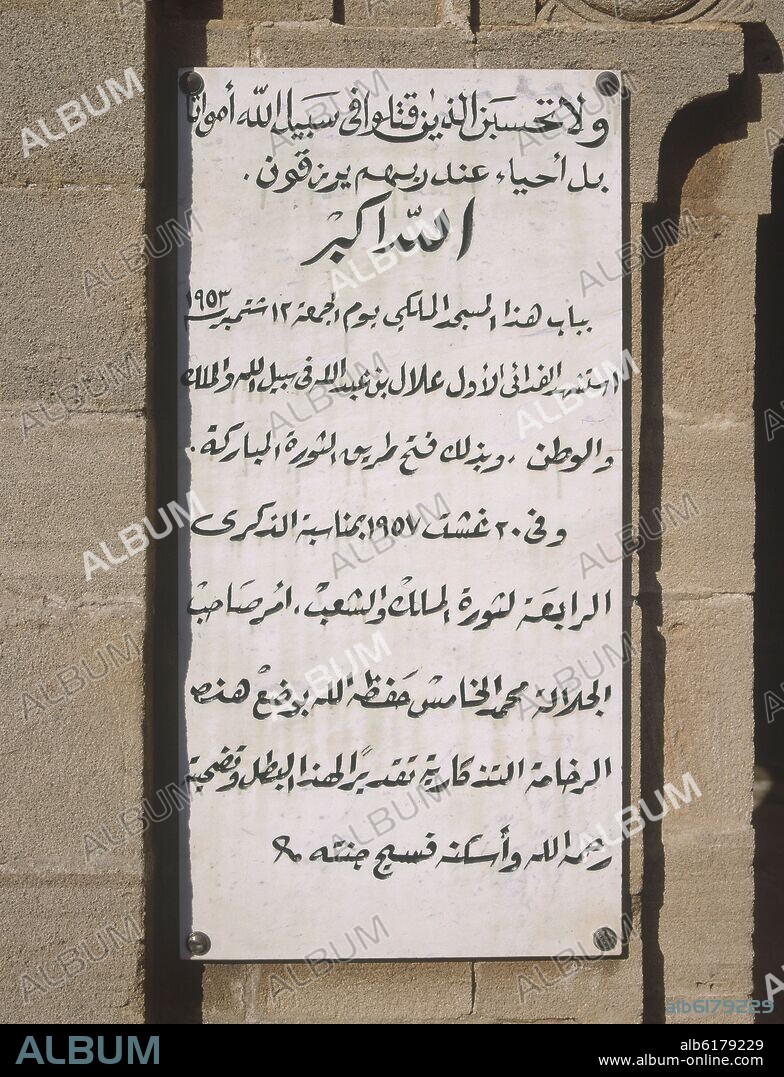 ولا تحسبن الذين قتلوا في سبيل الله أمواتا
بل أحياء عند ربهم يرزقون .
الله اكبر
بباب هذا المسجد الملكي يوم الجمعة ١٢ شتمبر ١٩٥٣
استشهد الفدائي الأول علال بن عبد الله في سبيل الله والملك
والوطن ، وبذلك فتح طريق الثورة المباركة .
وفي ٢٠ غشت ١٩٥٧ بمناسبة الذكرى
الرابعة لثورة الملك والشعب ، أمر صاحب
الجلالة محمد الخامس حفظه الله بوضع هذه
الرخامة التذكارية تقديرًا لهذا البطل وتضحيته
رحمه الله وأسكنه فسيح جنته
ALBUM
alb6179229
ALBUM
alb6179229
www.album-online.com